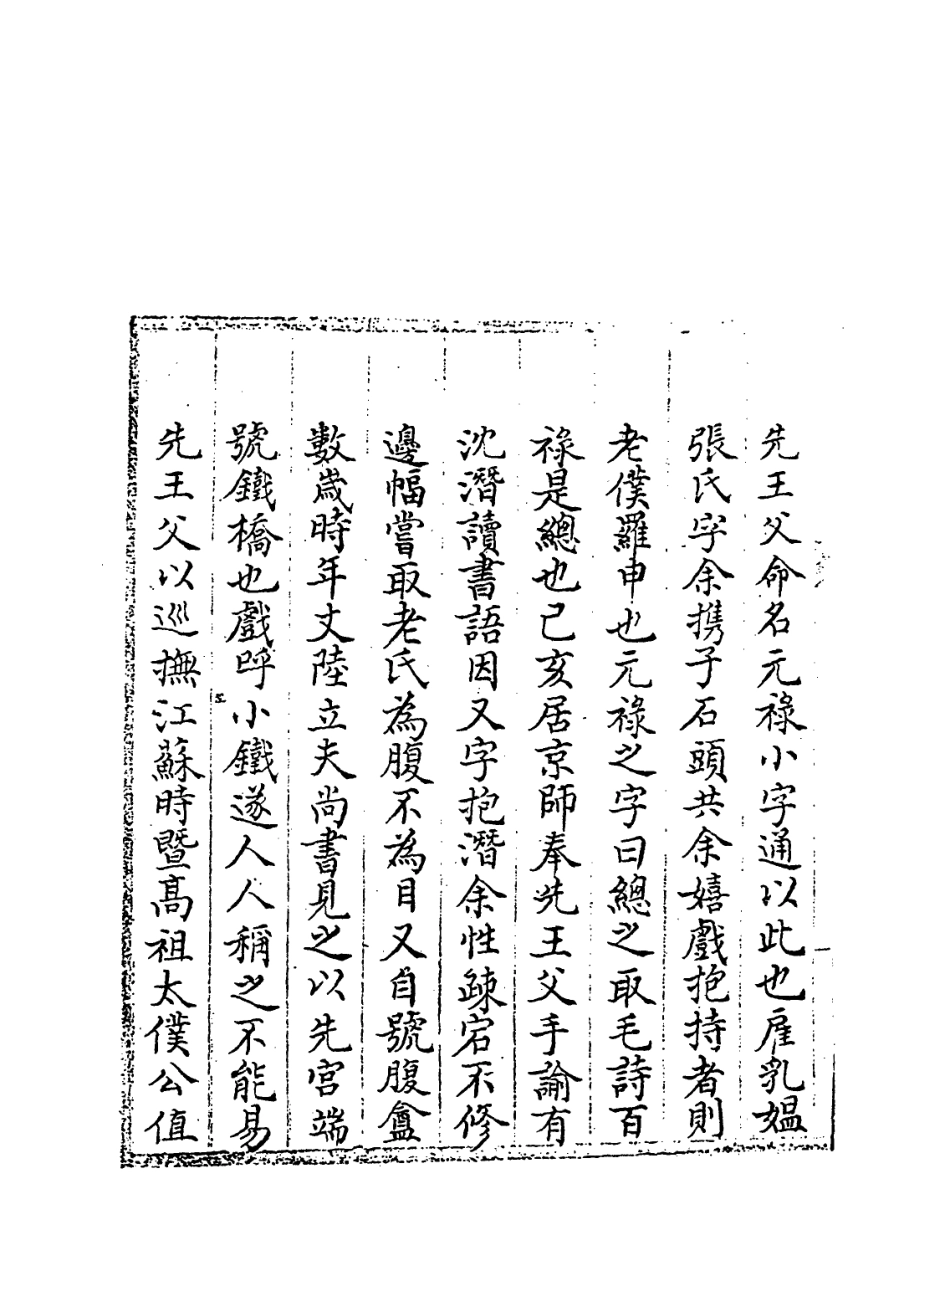 先王父命名元祿小字通以此也雇乳媼
張氏字余携子石頭共余嬉戲抱持者則
老僕羅申也元祿之字曰總之取毛詩百
祿是總也己亥居京師奉先王父手諭有
沈潛讀書語因又字抱潛余性疎宕不修
邊幅嘗取老氏為腹不為目又自號腹盦
數歲時年丈陸立夫尚書見之以先宮端
號鐵橋也戲呼小鐵遂人人稱之不能易
先王父以巡撫江蘇時暨高祖太僕公值